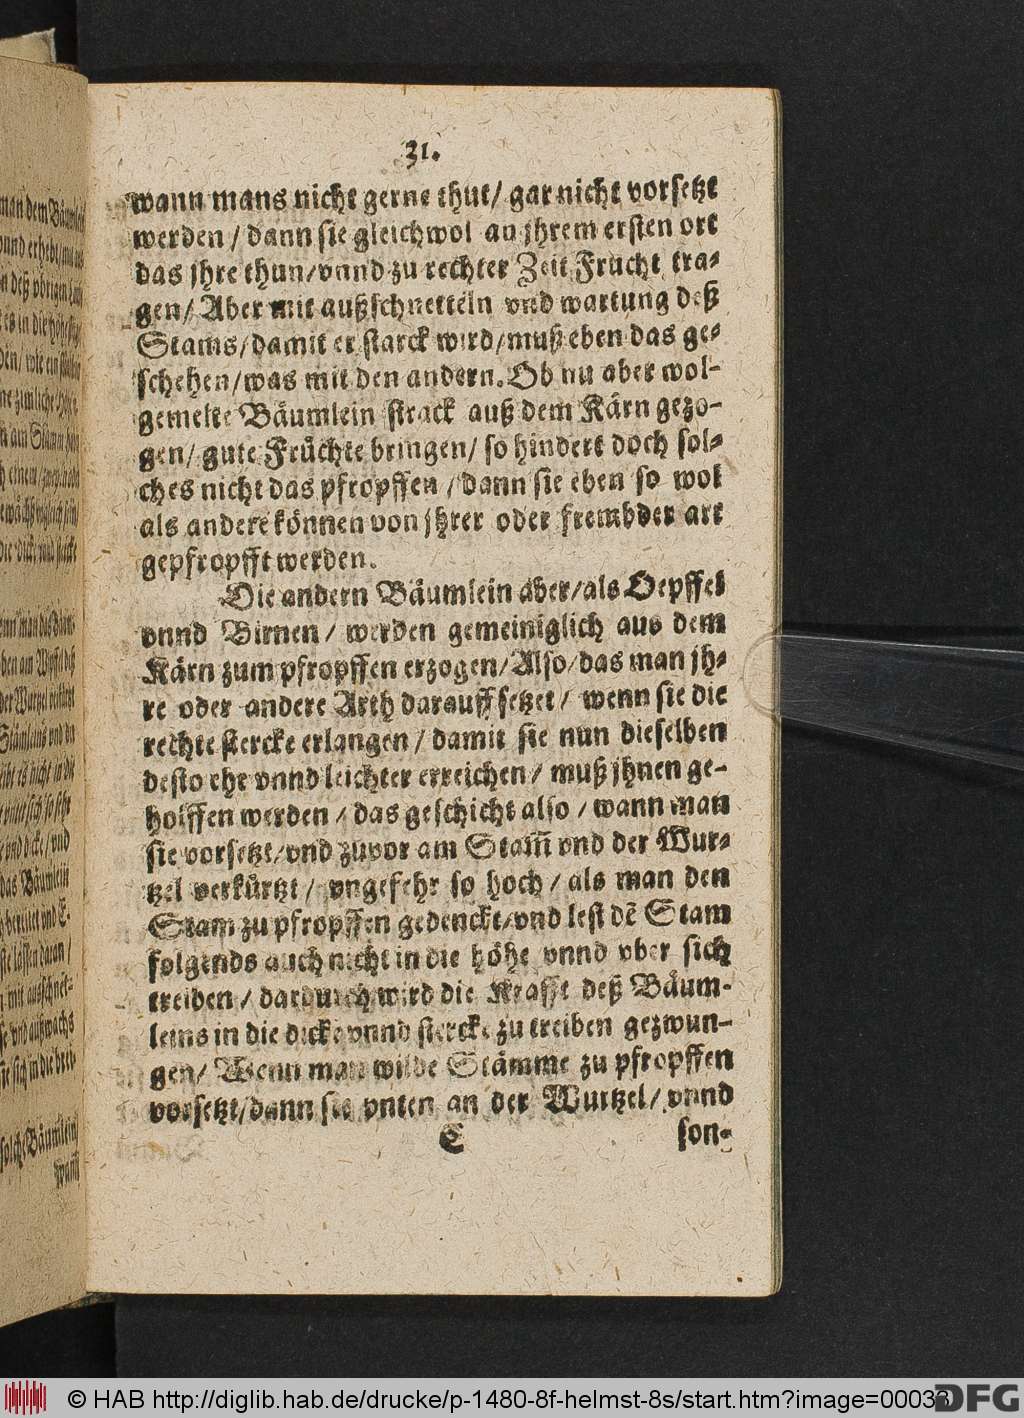 31.
wann mans nicht gerne thut/ gar nicht vorsetzt
werden / dann sie gleichwol an jhrem ersten ort
das jhre thun/vnnd zu rechter Zeit Frucht tra-
gen/ Aber mit außschnetteln vnd wartung deß
Stams/damit er starck wird/muß eben das ge-
schehen/was mit den andern. Ob nu aber wol-
gemelte Bäumlein strack auß dem Kärn gezo-
gen/ gute Früchte bringen/ so hindert doch sol-
ches nicht das pfropffen / dann sie eben so wol
als andere können von jhrer oder frembder art
gepfropfft werden.
Die andern Bäumlein aber/als Oepffel
vnnd Birnen / werden gemeiniglich aus dem
Kärn zum pfropffen erzogen/Also/das man jh-
re oder andere Arth darauff setzet / wenn sie die
rechte stercke erlangen / damit sie nun dieselben
desto ehr vnnd leichter erreichen / muß jhnen ge-
holffen werden / das geschicht also / wann man
sie vorsetzt/vnd zuvor am Stam̃ vnd der Wur-
tzel verkürtzt / vngefehr so hoch / als man den
Stam zu pfropffen gedenckt/vnd lest dẽ Stam
folgends auch nicht in die höhe vnnd vber sich
treiben / dardurch wird die Krafft deß Bäum-
leins in die dicke vnnd stercke zu treiben gezwun-
gen/ Wenn man wilde Stämme zu pfropffen
vorsetzt/dann sie vnten an der Wurtzel/ vnnd
C son-
© HAB http://diglib.hab.de/drucke/p-1480-8f-helmst-8s/start.htm?image=00033
DFG